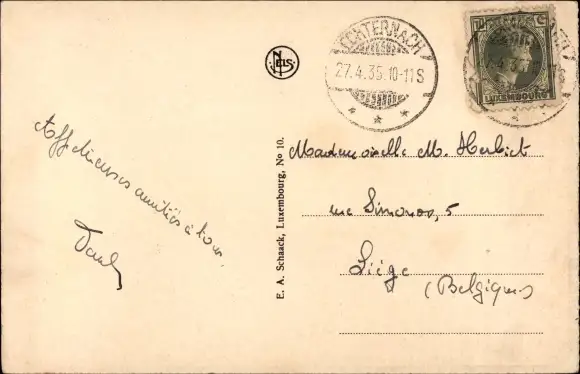 Affectueuses amitiés à tous.
Paul
NELS
E. A. Schaack, Luxembourg, No 10.
ECHTERNACH
27.4.35.10-11S
LUXEMBOURG
Mademoiselle M. Herbiet
rue Simonon, 5
Liége
(Belgique)